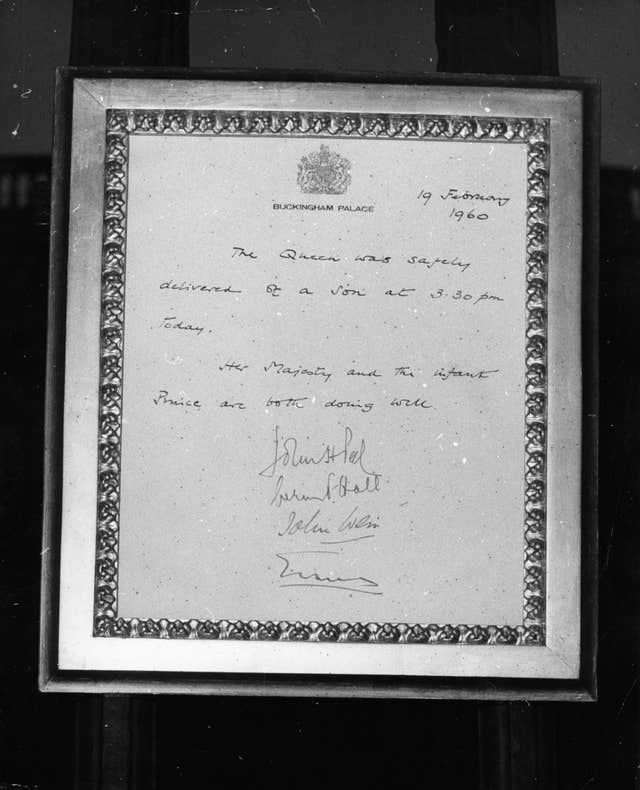 BUCKINGHAM PALACE
19 February
1960
The Queen was safely
delivered of a Son at 3.30 pm
Today.
Her Majesty and the infant
Prince are both doing well.
John H Peel
Hall
John Weir